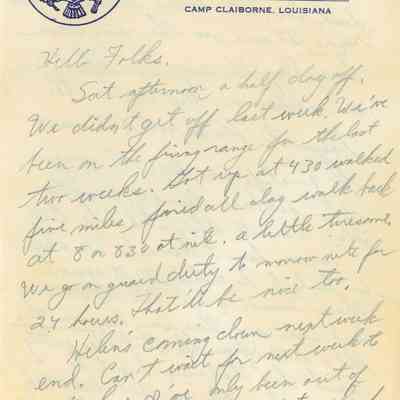 CAMP CLAIBORNE, LOUISIANA
Hello Folks.
Sat afternoon, a half day off.
We didn't get off last week. We've
been on the firing range for the last
two weeks. Got up at 430 walked
five miles, fired all day walk back
at 8 or 830 at nite. a little tiresome.
We go on guard duty to morrow nite for
24 hours. That'll be nice too.
Helen's coming down next week
end. Can't wait for next week to
only been out of